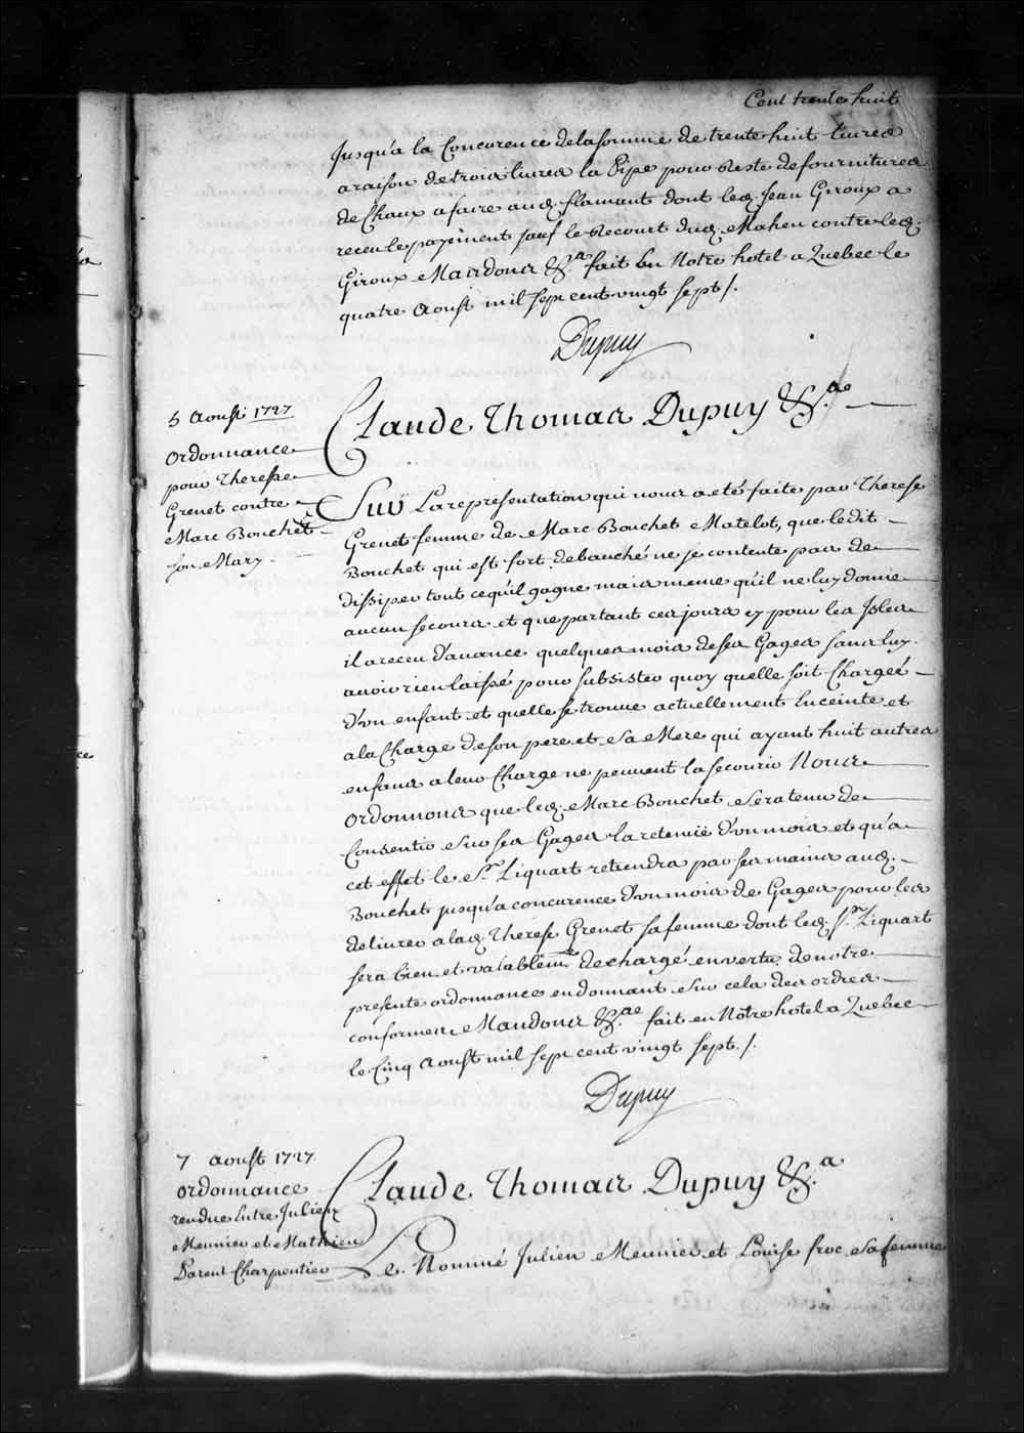 Cent trente huit
Jusqu'a la Concurence delasomme de trente huit livres
a raison de trois livres la Pipe pour Reste defournitures
de Chaux afaire aud. flamant dont led. Jean Giroux a
receu le payement sauf le Recours dud. Maheu contre led.
Giroux Mandons &.a fait En Notre hotel a Quebec le
quatre Aoust mil sept cent vingt sept /.
Dupuy
5 Aoust 1727
Ordonnance
pour Therese
Grenet contre
Marc Bouchet
son Mary
Claude Thomas Dupuy &.a
Sur La representation qui nous a eté faite par Therese
Grenet femme de Marc Bouchet Matelot, que ledit
Bouchet qui est fort debauché ne se contente pas de
dissiper tout cequ'il gagne mais meme qu'il ne luy donne
aucun secours et que partant ces jours cy pour les Isles
il a receu d'avance quelques mois deses Gages sans luy
avoir rien laissé pour subsister quoy quelle soit Chargeé
d'un enfant et quelle se trouve actuellement Enceinte et
ala Charge deson pere et Sa Mere qui ayant huit autres
enfans a leur Charge ne peuvent la secourir Nous
Ordonnons que led. Marc Bouchet Sera tenu de
Consentir Sur ses Gages la retenüe d'un mois et qu'a
cet effet le S.r Liquart retiendra par ses mains aud.
Bouchet jusqu'a concurence d'un mois de Gages pour les
delivrer a lad. Therese Grenet sa femme dont led. S.r Liquart
sera bien et valablem.t dechargé en vertu de notre
presente ordonnance en donnant Sur cela des ordres
conformes Mandons &.a fait en Notre hotel a Quebec
le Cinq Aoust mil sept cent vingt sept. /.
Dupuy
7 Aoust 1727
Ordonnance
rendue Entre Julien
Meunier et Mathieu
Parent Charpentier
Claude Thomas Dupuy &.a
Le Nommé Julien Meunier et Louise froc Safemme